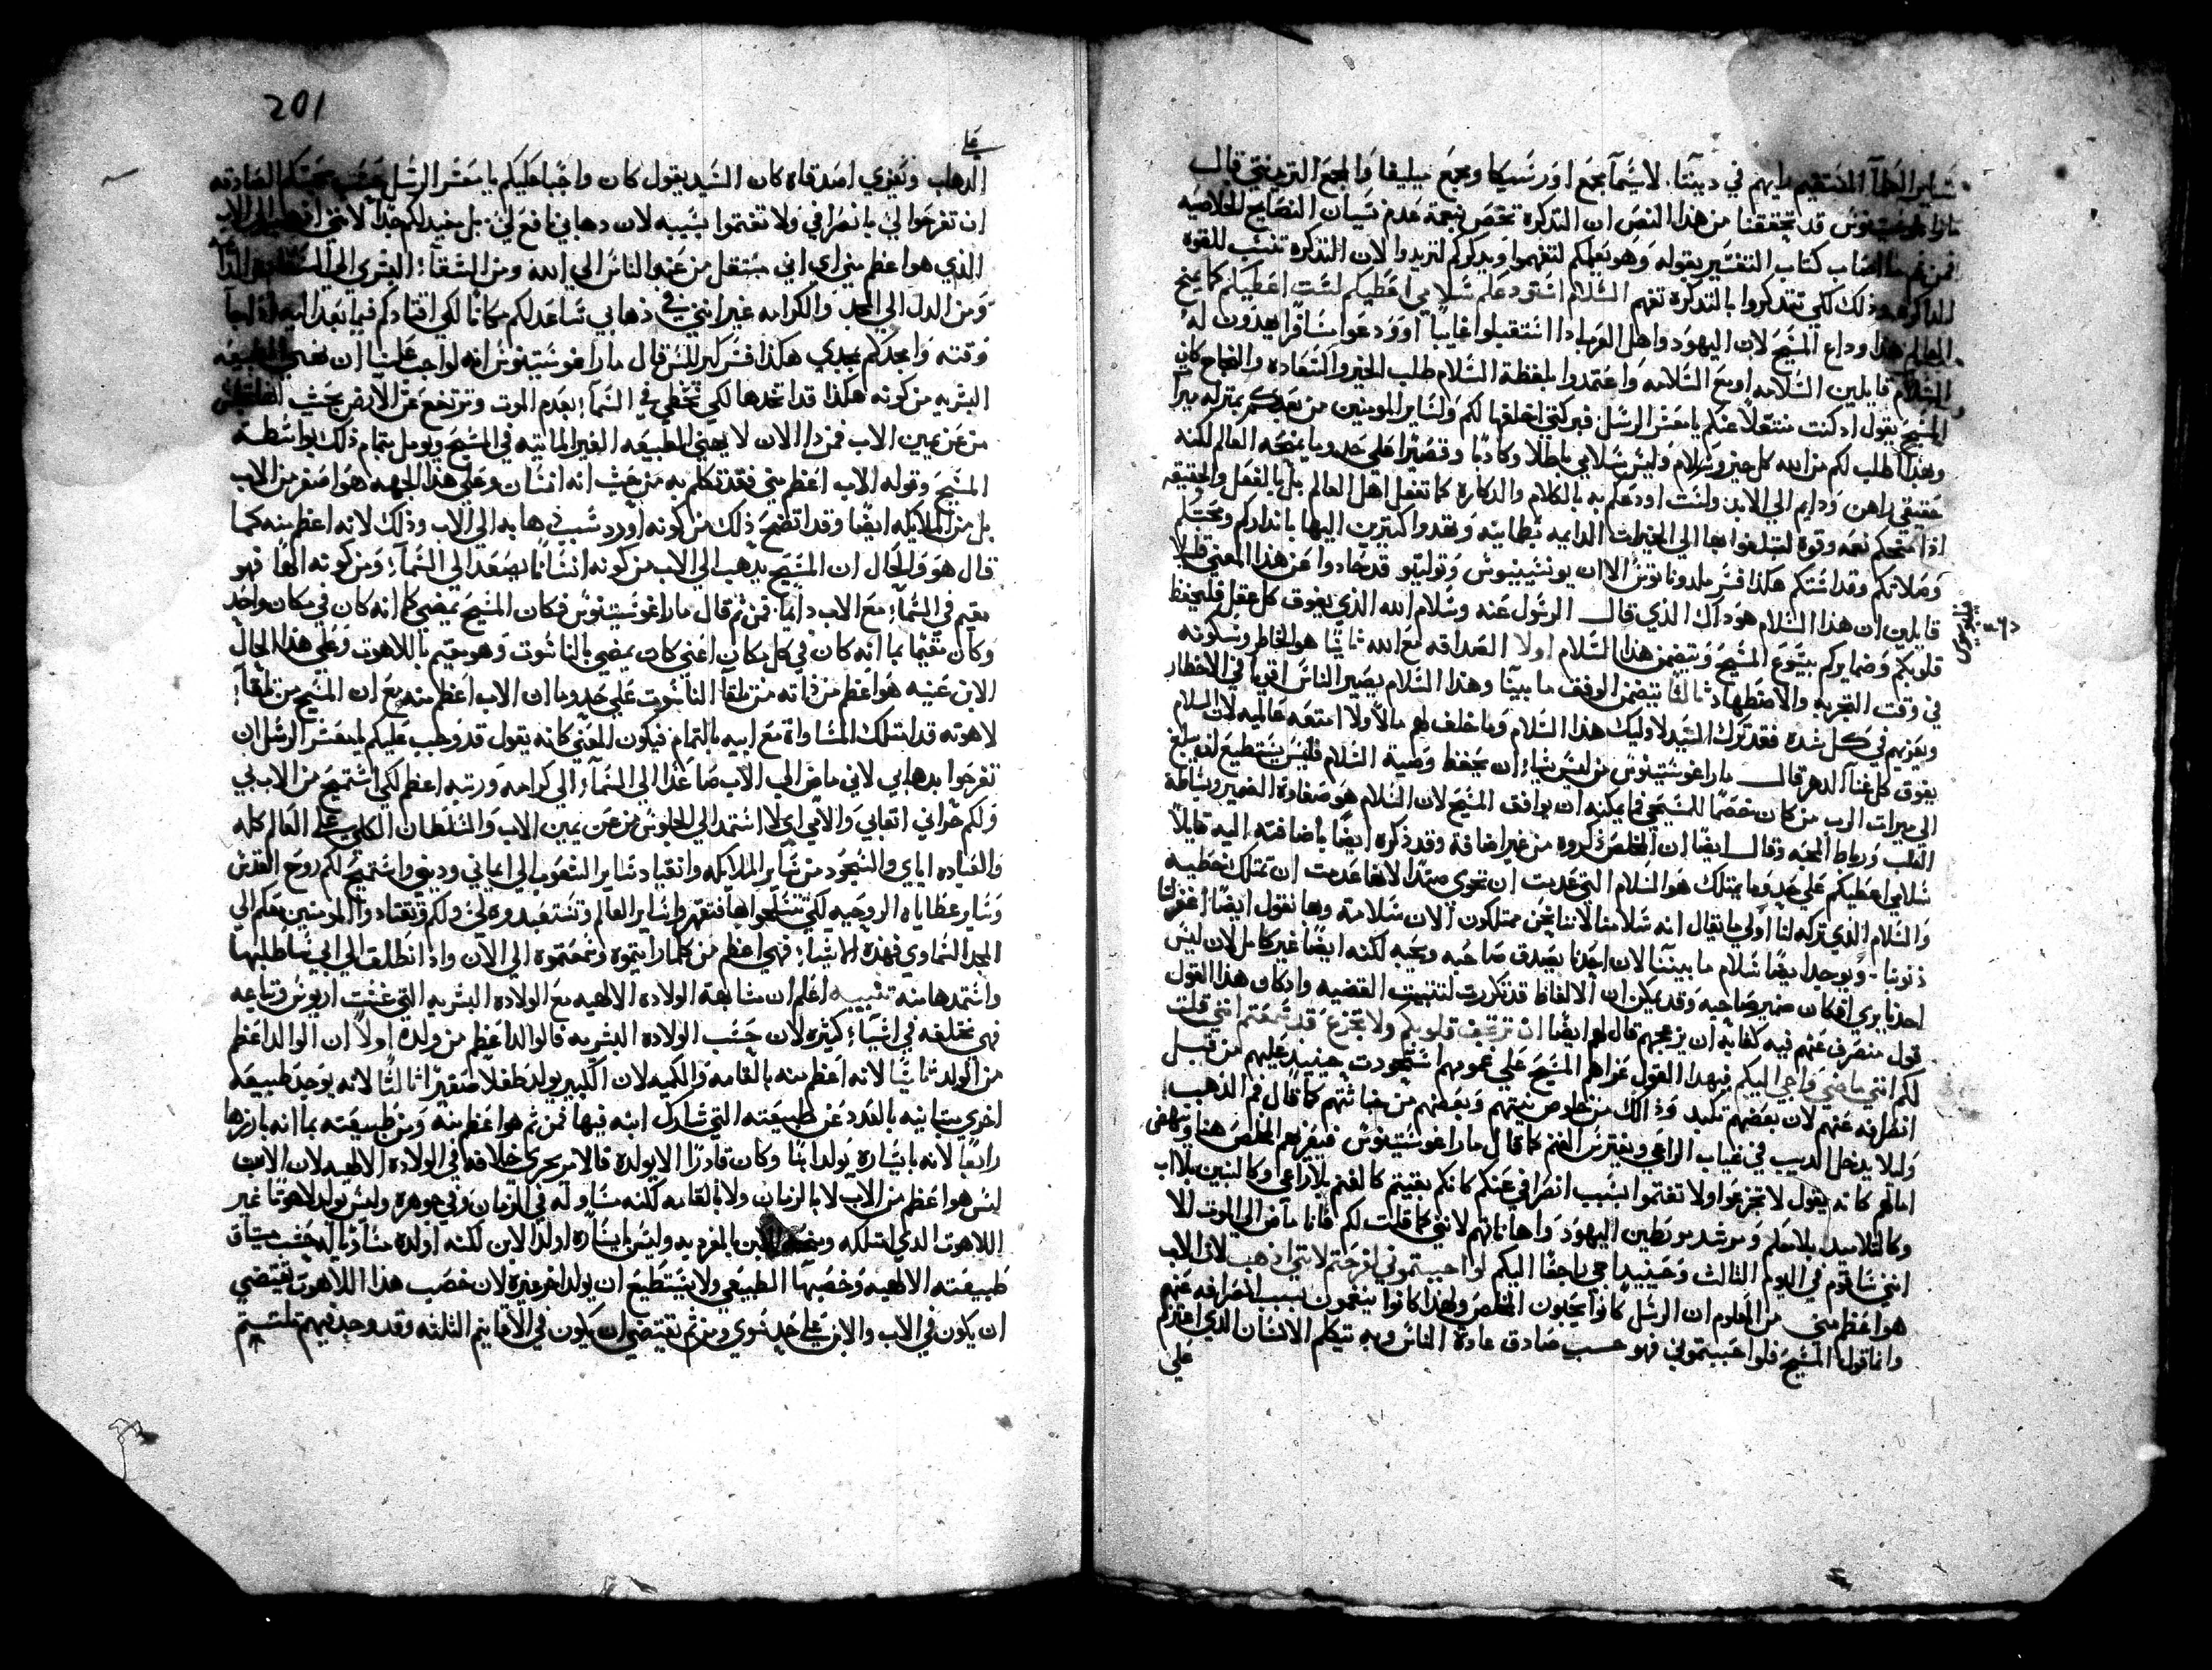 ساير العلمآ المستقيم رايهم في ديننا. لاسيمآ مجمع اورشيكا ومجمع ميليفا والمجمع التريدنتي قال
مارا اغوستينوس قد تحققنا من هذا النص ان التذكره تختص بنعمة عدم نسيان النصايح الخلاصيه
فمن ثم اصاب كتاب التفسير بقوله وهو يعلمكم لتفهموا ويذكركم لتريدوا لان التذكره تنسب للقوه
الذاكره وذلك لكي تتذكروا بالتذكره تفهم السلام استودعكم سلامي اعطيكم لست اعطيكم كما يمنح
العالم هذا وداع المسيح لان اليهود واهل العرب اذا استقبلوا غايباً او ودعوا مسافراً يهدون له
السلام قايلين السلامه او مع السلامه واعتمدوا بلفظة السلام طلب الخير والسعاده والنجاح كان
المسيح يقول اذ كنت منتقلاً عنكم يا معشر الرسل فبركتي اخلفها لكم ولساير المومنين من بعدكم بمنزلة ميراث
وبهذا اطلب لكم من الله كل خير وسلام وليس سلامي باطلا وكاذبا وقصيرا على حد ما يمنحه العالم لكنه
حقيقي راهن ودايم الي الابد ولست اودعكم به بالكلام والدكاره كما تفعل اهل العالم بل بالفعل والحقيقه
اذا منحكم نعمه وقوه لتبلغوا بها الي الخيرات الدايمه بطمانينه وتقدوا كثيرين اليها بانذاركم ومحبتكم
وصلاتكم وقداستكم هكذا فسر ملدوناتوس الا ان يونسينيوس وتوليتو قد حادوا عن هذا المعني قليلا
قايلين ان هذا السلام هو ذاك الذي قال الرسول عنه وسلام الله الذي يفوق كل عقل فليحفظ
فيلبوسيوس ٤: ٧
قلوبكم وضمايركم بيسوع المسيح ويتضمن هذا السلام اولا الصداقه مع الله ثانيًا هو الخاطر وسكونه
في وقت التجربه والاضطهاد ثالثًا يتضمن الوفق ما بيننا وهذا السلام يصير الناس اقويآ في الاخطار
ويعزيهم في كل شده فقد ترك السيد لاوليك هذا السلام وما خلف لهم مالاً ولا امتعه عالميه لان السلام
يفوق كل غنآ الدهر قال مارا غوستينوس من ليس يشآ ان يحفظ وصية السلام فليس يستطيع ان يبلغ
الي ميراث الرب من كان خصمًا للمسيحي فما يمكنه ان يوافق المسيح لان السلام هو صفاوة الضمير وبساطة
القلب ورباط المحبه وقال ايضًا ان المخلص ذكره من غير اضافة وقد ذكره ايضًا باضافته اليه قايلاً
سلامي اعطيكم على حد ما يمتلك هو السلام التي عدمت ان تحوي ضدا لانها عدمت ان تمتلك خطيه
والسلام الذي تركه لنا اولي ما يقال انه سلامنا لاننا نحن ممتلكون الان سلامته وبها نقول ايضًا اغفر لنا
ذنوبنا. ويوجد ايضًا سلام ما بيننا لان احدنا يصدق صاحبه ويحبه لكنه ايضًا غير كامل لان ليس
احد يري افكار ضمير صاحبه وقد يمكن ان الالفاظ قد تكررت لتثبيت القضيه واذ كان هذا القول
قول منصرف عنهم فيه كفاية ان يزعجهم قال لهم ايضًا ان ترتجف قلوبكم ولا تجزع قد سمعتم انني قلت
لكم انني ماضي واجي اليكم فبهذا القول عزاهم المسيح علي غمومهم استحوذت حينيذ عليهم من قبل
انطلاقه عنهم لان بعضهم تكبد وذلك من خلوص نيتهم وبعضهم من خباثتهم كما قال فم الذهب
وليلا يدخل الديب في غياب الراعي ويفترس الغنم كما قال مارا غوستينوس فيعزيهم المخلص هنا وينهض
امالهم كانه يقول لا تجزعوا ولا تغتموا بسبب انصرافي عنكم كانكم بقيتم كالغنم بلا راعي وكالبنين بلا اب
وكالتلاميذ بلا معلم ومرشد مربطين اليهود واهاناتهم لانني كما قلت لكم فانا ماض الي الموت الا
انني ساقوم في اليوم الثالث وحينيذ اجي راجعًا اليكم لو احببتموني لفرحتم لانني اذهب لان الاب
هو اعظم مني من المعلوم ان الرسل كانوا يحبون المخلص ولهذا كانوا ينغمون بسبب انصرافه عنهم
وانما قول المسيح فلو احببتموني فهو حسب صادق عادة الناس وبه تيكلم الانسان الذي اعتزم
علي
201
علي
الدهاب وتعزي اصدقاه كان السيد يقول كان واجبا عليكم يا معشر الرسل بحسب محبتكم الصادقه
ان تفرحوا لي بانصرافي ولا تغتموا بسببه لان دهابي نافع لي بل مفيد لكم جدا لانني اذهب الي الاب
الذي هو اعظم مني اي اني منتقل من عند الناس الي الله ومن الشقآ البشري الي السعاده
ومن الدل الي المجد والكرامه غير انني في ذهابي ساعد لكم مكانًا لكي اقتادكم فيما بعد اليه اذا جآ
وقته وامجدكم بمجدي هكذا فسر كيرللس قال مارا غوستينوس انه لواجب علينا ان نهني الطبيعه
البشريه من كونه هكذا قد اتخدها لكي تحظي في السمآ بعدم الموت وترتفع عن الارض بحيث انها تجلس
من عن يمين الاب فمن ذا الان لا يهني الطبيعه الغير المايته في المسيح ويومل بتمام ذلك بواسطة
المسيح وقوله الاب اعظم مني فقد تكلم به من حيث انه انسان وعلي هذا الجهه هو اصغر من الاب
بل من الملايكه ايضًا وقد اتضح ذلك من كونه اورد سبب ذهابه الي الاب وذلك لانه اعظم منه كما
قال هو والحال ان المسيح يذهب الي الاب من كونه انسانًا يصعد الي السمآ ومن كونه الهًا فهو
مقيم في السمآ مع الاب دايما فمن ثم قال مارا غوستينوس فكان المسيح يمضي كما انه كان في مكان واحد
وكان مقيما بما انه كان في كل مكان اعني كان يمضي بالناسوت وهو مقيم باللاهوت وعلي هذا الحال
الابن عينه هو اعظم من ذاته من تلقآ الناسوت علي حد ما ان الاب اعظم منه مع ان المسيح من تلقآ
لاهوته قد امتلك المساواة مع ابيه بالتمام فيكون المعني كانه يقول قد وجب عليكم يا معشر الرسل ان
تفرحوا بدهابي لاني ماض الي الاب صاعدًا الي السمآ والي كرامه ورتبه اعظم لكي استميح من الاب لي
ولكم جزآ اتعابي والامي اي لا استمد الي الجلوس من عن يمين الاب والسلطان الكلي على العالم كله
والعباده اياي والسجود من ساير الملايكه وانقياد ساير الشعوب الي ايماني وديني واستميح لكم روح القدس
وساير عطاياه الروحيه لكي تتسلحوا بها فتقهروا ساير العالم وتستعبدوه لي ولكم وتقتادوا المومنين معكم الي
المجد السماوي فهذه الاشيآ فهي اعظم من كلما رايتموه وسمعتموه الي الان واذا انطلقت الي ابي ساطلبها
واستمدها منه تنبيه اعلم ان مشابهة الولاده الالهيه مع الولاده البشريه التي غشت اريوس وتباعه
فهي مختلفه في اشيآ كثيره لان حسب الولاده البشريه قالوا الد اعظم من ولده اولاً ان الوالد اعظم
من الولد ثانيًا لانه اعظم منه بالقامه والكميه لان الكبير يولد طفلاً صغيرًا ثالثًا لانه يوجد طبيعه
اخري متباينه بالعدد عن طبيعته التي شارك ابنه فيها فمن ثم هو اعظم منه ومن طبيعته بما انه بارزها
رابعًا لانه باشارة يولد ابنًا وكان قادرًا الا يولده فالامر يجري خلافه في الولاده الالهيه لان الاب
ليس هو اعظم من الاب لا بالزمان ولا بالقامه لكنه مساو له في الزمان وفي جوهره وليس يولد لاهوتًا غير
اللاهوت الذي امتلكه ومنحه للابن بالمفرديه وليس باشاره اولد الابن لكنه اولده مساويا له حسب مساق
طبيعته الالهيه وخصبها الطبيعي ولا يستطيع ان يولد اخر غيره لان خصب هذا اللاهوت يقتضي
ان يكون في الاب والابن علي حد سوي ومن ثم يقتضي ان يكون في الاقانيم الثلثه وقد وجد فيهم ملتيم